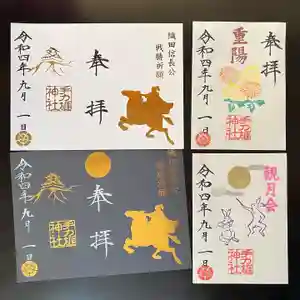 織田信長公
戦勝祈願
奉拝
令和四年九月一日
手力雄
神社
重陽
奉拝
令和四年九月一日
手力雄
神社
奉拝
令和四年九月一日
手力雄
神社
観月会
令和四年九月一日
手力雄
神社